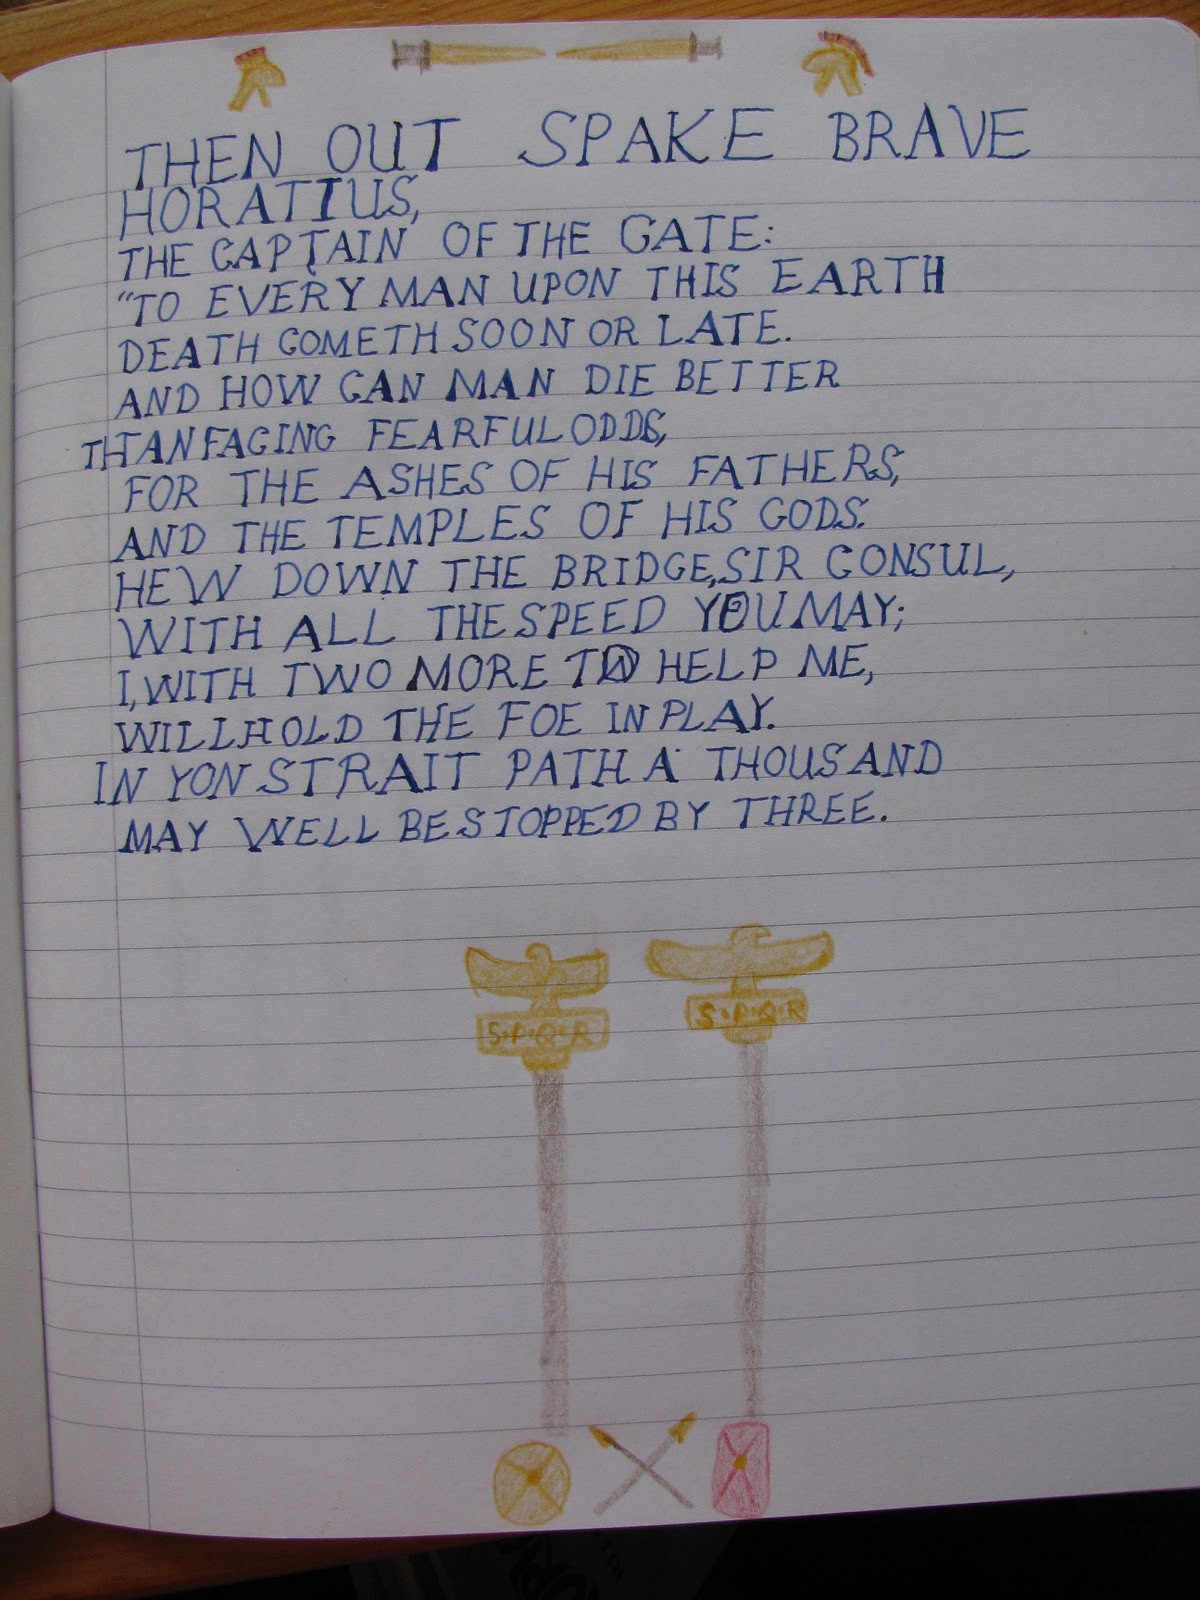 THEN OUT SPAKE BRAVE
HORATIUS,
THE CAPTAIN OF THE GATE:
"TO EVERY MAN UPON THIS EARTH
DEATH COMETH SOON OR LATE.
AND HOW CAN MAN DIE BETTER
THTAN FACING FEARFUL ODDS,
FOR THE ASHES OF HIS FATHERS,
AND THE TEMPLES OF HIS GODS.
HEW DOWN THE BRIDGE, SIR CONSUL,
WITH ALL THE SPEED YOU MAY;
I, WITH TWO MORE TO HELP ME,
WILL HOLD THE FOE IN PLAY.
IN YON STRAIT PATH A THOUSAND
MAY WELL BE STOPPED BY THREE.
S·P·Q·R
S·P·Q·R